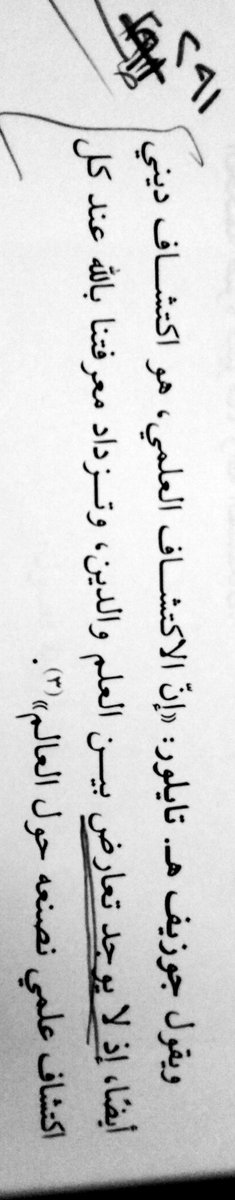 ويقول جوزيف هـ. تايلور: «إنّ الاكتشاف العلمي، هو اكتشاف ديني
أيضًا، إذ لا يوجد تعارض بين العلم والدين، وتزداد معرفتنا بالله عند كل
اكتشاف علمي نصنعه حول العالم»(٣).